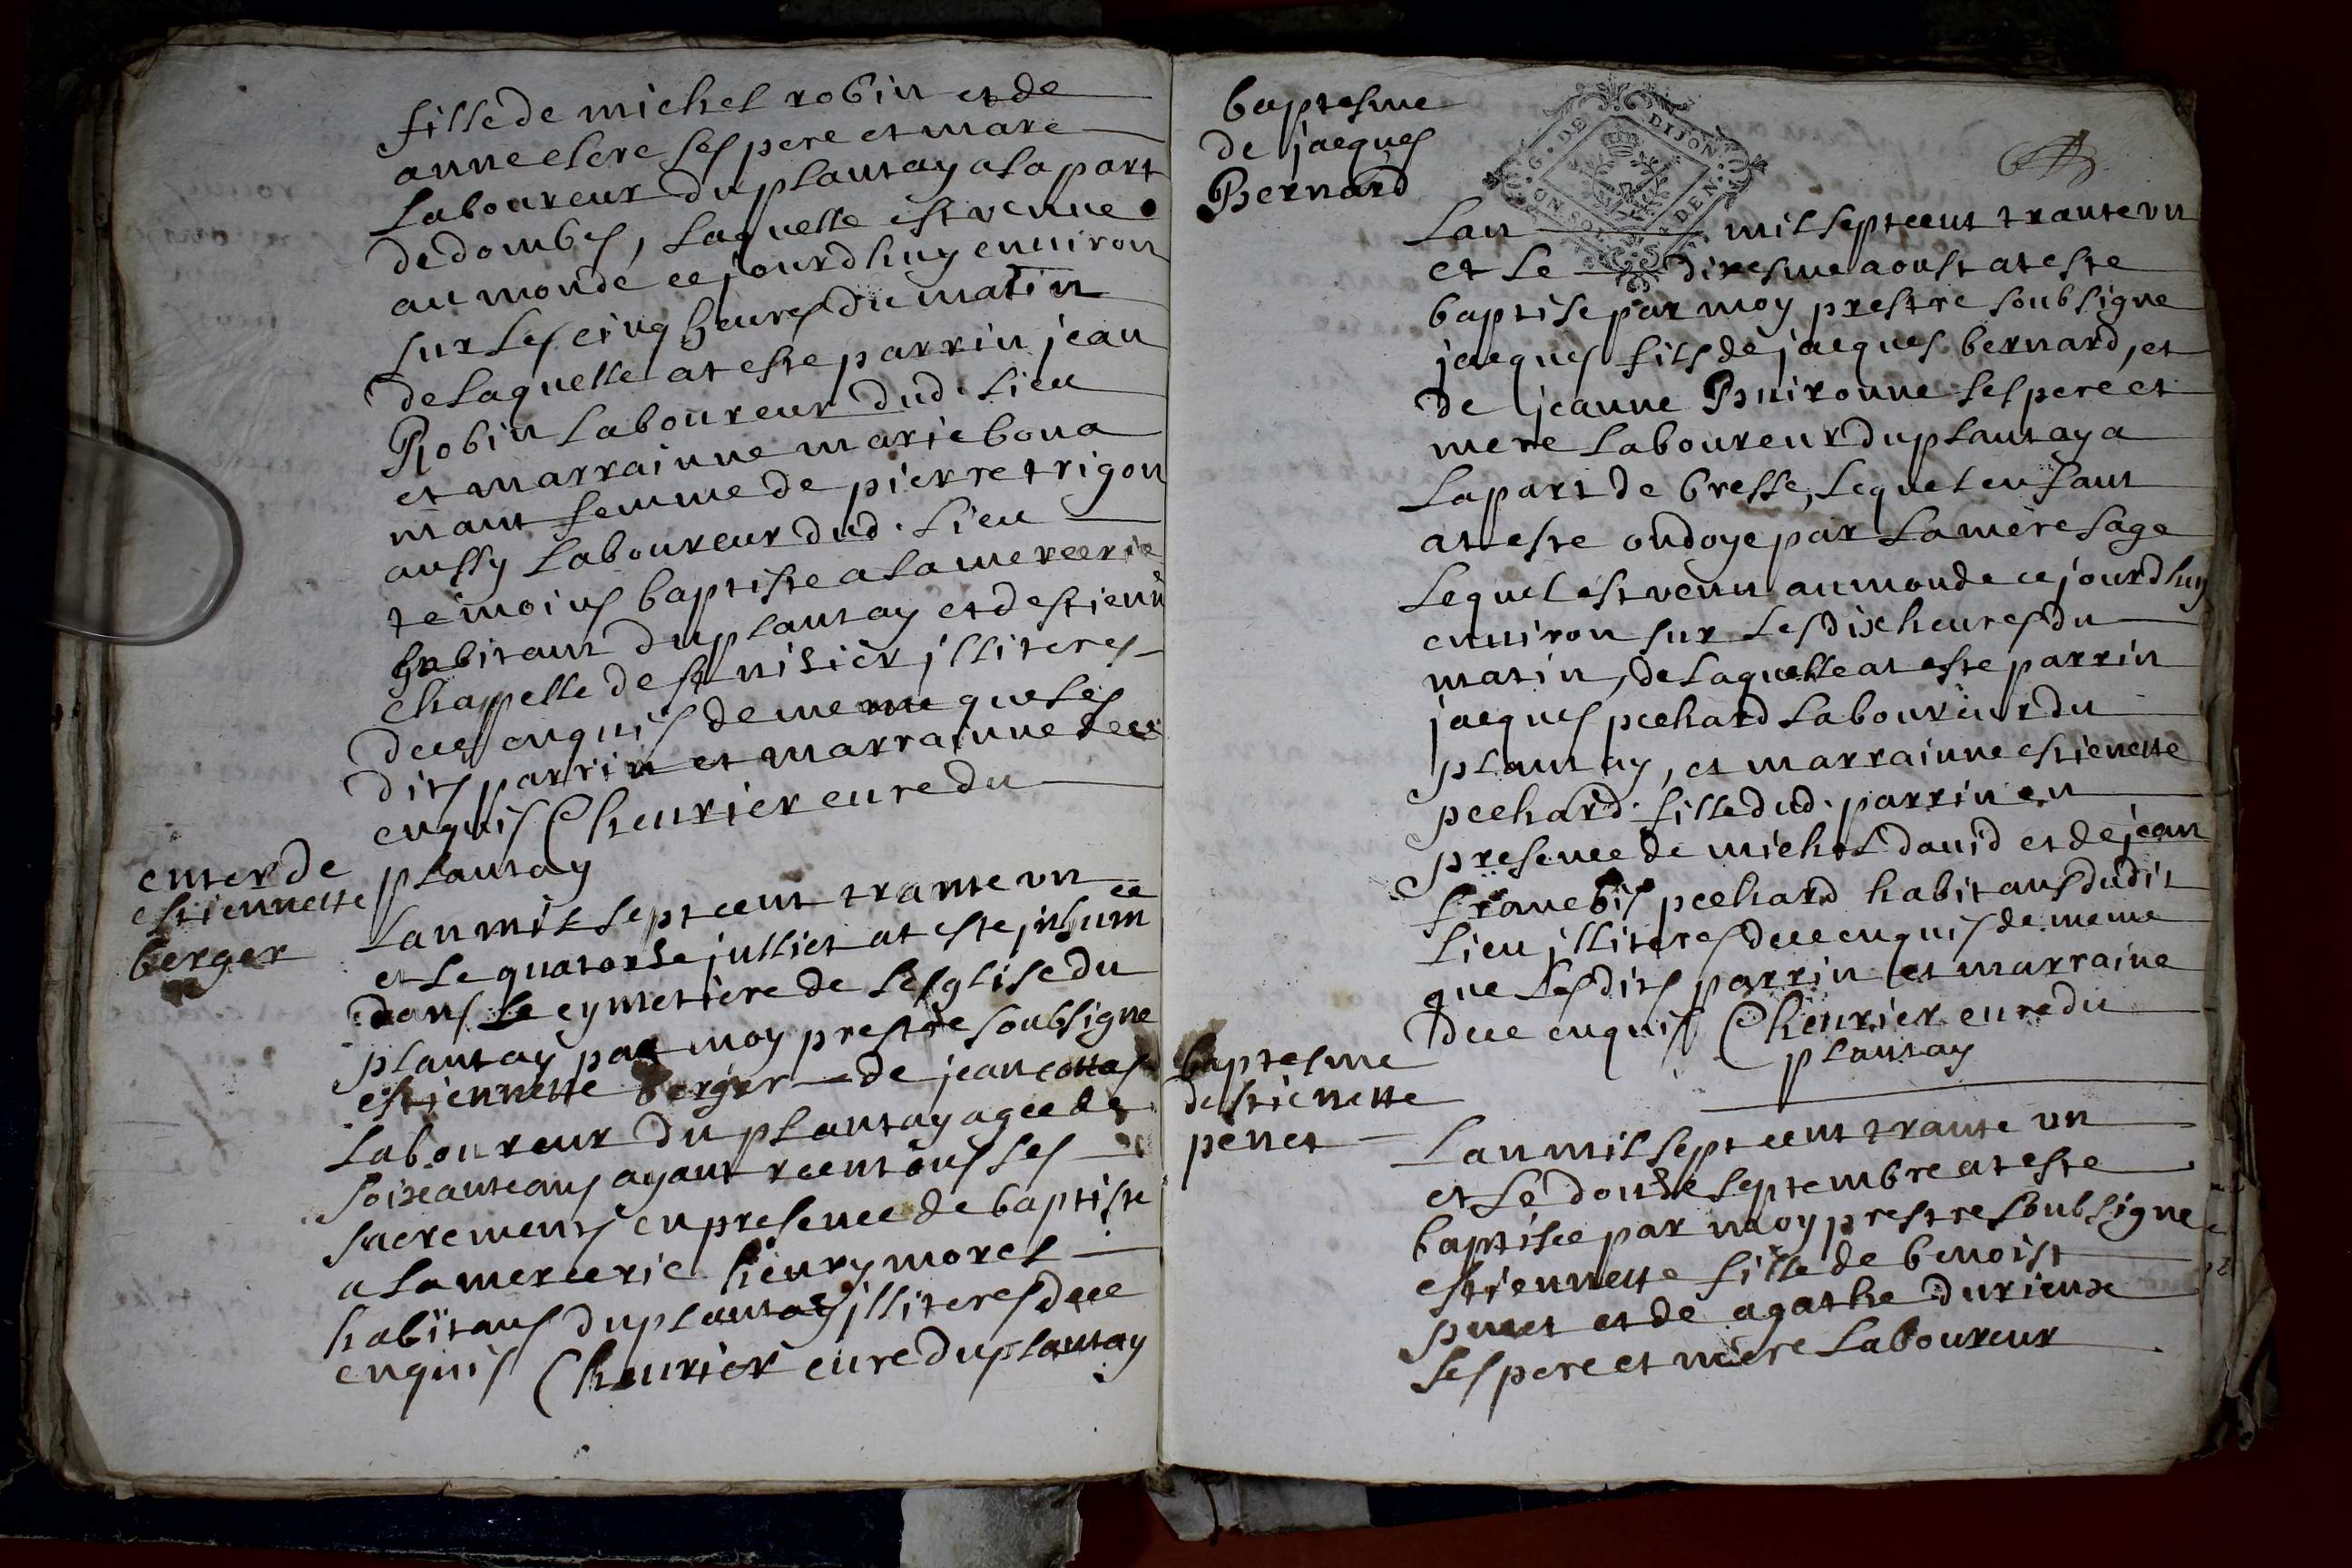 fille de michel robin et de
anne clere ses pere et mare
Laboureur du plantay a la part
de dombes, Laquelle est venue
au monde ce jourdhuy enuiron
sur Les cinq heures du matin
de Laquelle at este parrin jean
Robin Laboureur dud. Lieu
et marrainne marie bona
mant femme de pierre trigon
aussy Laboureur dud. Lieu
temoins baptiste alamercerie
habitant du plantay et destienn
chappelle de st nisier jlliteres
dece enquis de meme que Les
dits parrin et marrainne dece
enquis Cheurier cure du
plantay
enter de
estiennette
berger
Lan mil sept cent trante vn
et Le quatorse julliet at este jnhumée
dans Le cymetiere de Lesglise du
plantay par moy prestre soubsigne
estiennette berger de jean cottas
Laboureur du plantay agee de
soixante ans ayant receu tous ses
sacrements en presence de baptiste
alamercerie henry morel
habitans du plantay jlliteres dece
enquis Cheurier cure du plantay
baptesme
de jacques
Bernard
G. DE DIJON
Lan mil sept cent trante vn
et Le dixesme aoust at este
baptise par moy prestre soubsigne
jacques fils de jacques bernard, et
de jeanne Buironne ses pere et
mere Laboureur du plantay a
La part de bresse, Lequel enfant
at este ondoye par La mere sage
Lequel est venu au monde ce jourdhuy
enuiron sur Les dix heures du
matin, de Laquelle at este parrin
jacques pechard Laboureur du
plantay, et marrainne estienette
pechard fille dud. parrin en
presence de michel dauid et de jean
francois pechard habitans dudit
Lieu jlliteres dece enquis de meme
que Lesdits parrin et marraine
dece enquis Cheurier cure du
plantay
baptesme
destienette
penet
Lan mil sept cent trante vn
et Le douse septembre at este
baptisee par moy prestre soubsigne
estiennette fille de benoist
penet et de agathe durieux
ses pere et mere Laboureur